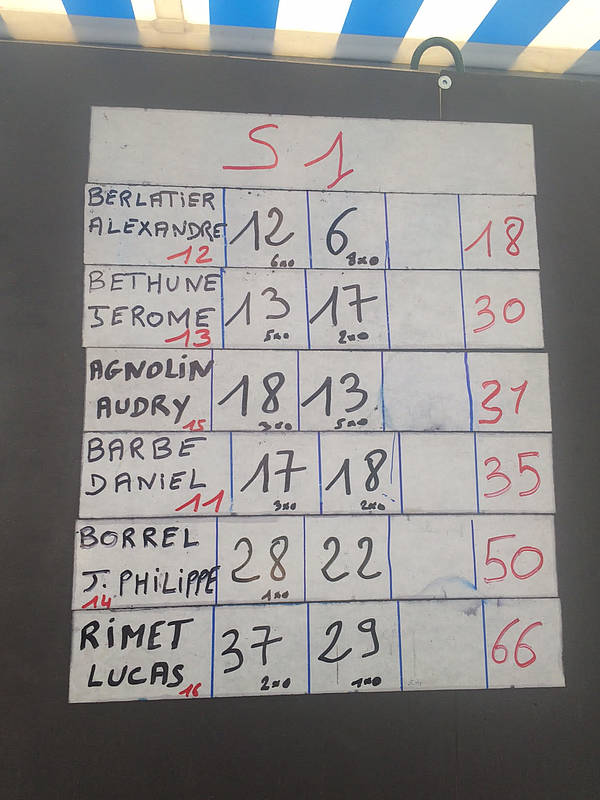 S 1
BERLATIER
ALEXANDRE 12 12 6x0 6 8x0 18
BETHUNE
JEROME 13 13 5x0 17 2x0 30
AGNOLIN
AUDRY 15 18 3x0 13 5x0 31
BARBE
DANIEL 11 17 3x0 18 2x0 35
BORREL
J. PHILIPPE 14 28 1x0 22 50
RIMET
LUCAS 16 37 2x0 29 1x0 66